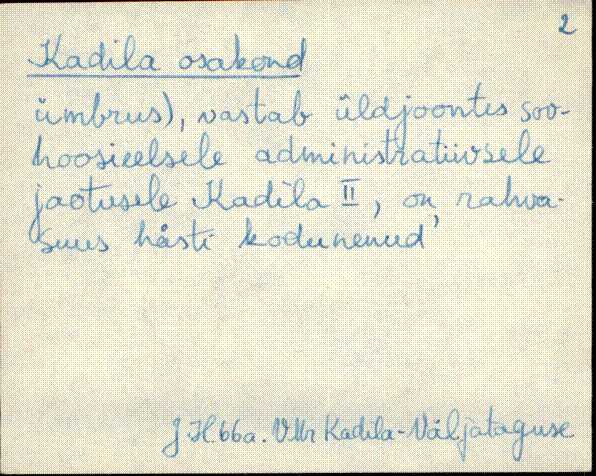 2
Kadila osakond
ümbrus), vastab üldjoontes sov-
hoosieelsele administratiivsele
jaotusele Kadila II, on rahva-
suus hästi kodunenud
J H. 66a. VMr Kadila-Väljataguse